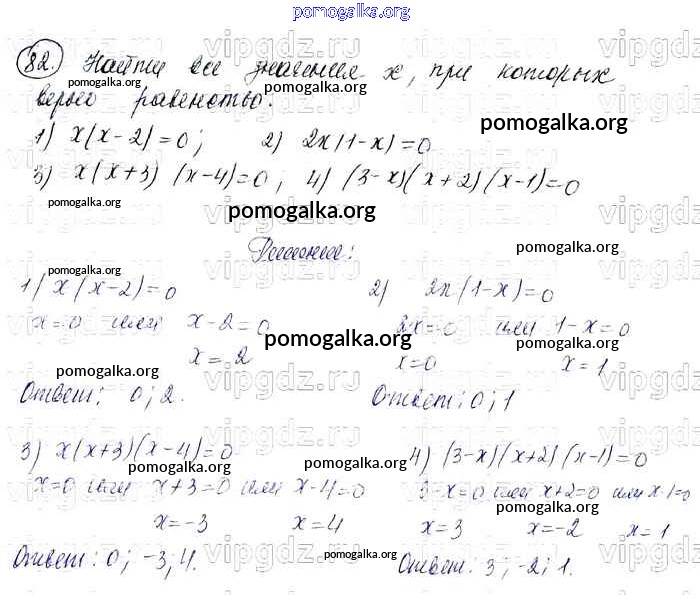 pomogalka.org
82. Найти все значения x, при которых
верно равенство.
1) x(x-2)=0; 2) 2x(1-x)=0
3) x(x+3)(x-4)=0; 4) (3-x)(x+2)(x-1)=0
Решение:
1) x(x-2)=0 2) 2x(1-x)=0
x=0 или x-2=0 2x=0 или 1-x=0
x=2 x=0 x=1
Ответ: 0; 2. Ответ: 0; 1
3) x(x+3)(x-4)=0 4) (3-x)(x+2)(x-1)=0
x=0 или x+3=0 или x-4=0 3-x=0 или x+2=0 или x-1=0
x=-3 x=4 x=3 x=-2 x=1
Ответ: 0; -3; 4. Ответ: 3; -2; 1.
pomogalka.org
vipgdz.ru